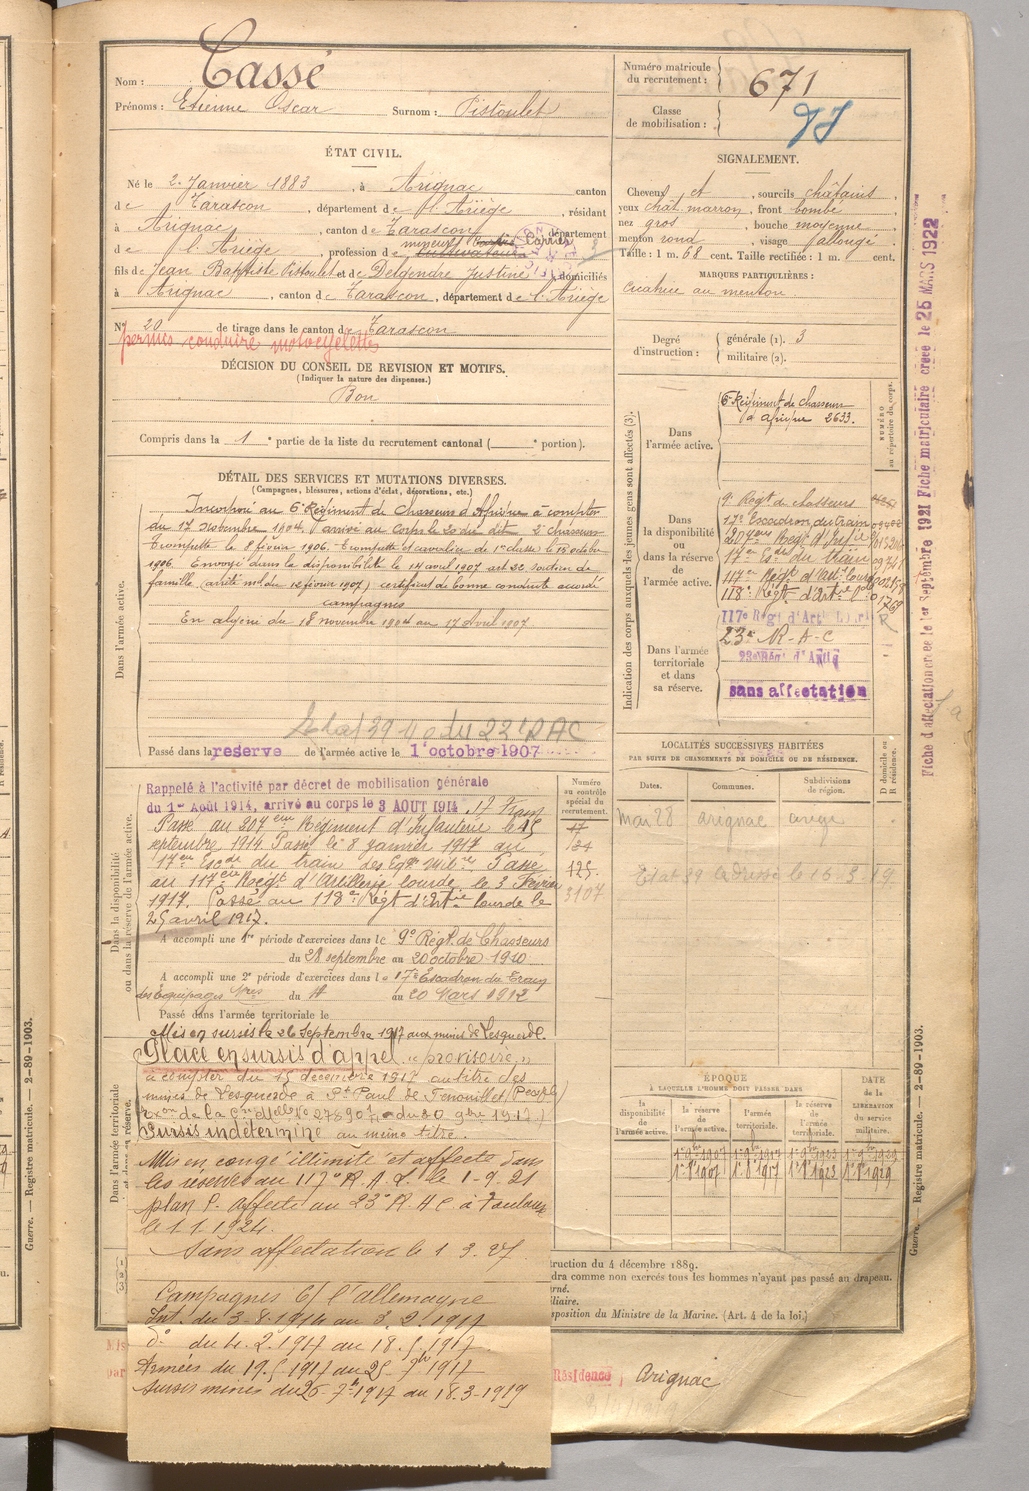 Nom : Cassé
Prénoms : Etienne Oscar Surnom : Pistoulet
Numéro matricule du recrutement : 671
Classe de mobilisation :
ÉTAT CIVIL.
Né le 2 Janvier 1883, à Arignac canton
de Tarascon, département de l'Ariège, résidant
à Arignac, canton de Tarascon, département
de l'Ariège, profession de mineur Carrier
fils de Jean Baptiste Pistoulet et de Delgendre Justine, domiciliés
à Arignac, canton de Tarascon, département de l'Ariège
N° 20 de tirage dans le canton de Tarascon
permis conduire motocyclettes
DÉCISION DU CONSEIL DE REVISION ET MOTIFS.
(Indiquer la nature des dispenses.)
Bon
Compris dans la 1e partie de la liste du recrutement cantonal ( e portion).
SIGNALEMENT.
Cheveux et, sourcils châtains
yeux chât. marron, front bombé
nez gros, bouche moyenne
menton rond, visage allongé
Taille : 1 m. 68 cent. Taille rectifiée : 1 m. cent.
MARQUES PARTICULIÈRES :
Cicatrice au menton.
Degré d'instruction : générale (1). 3
militaire (2).
DÉTAIL DES SERVICES ET MUTATIONS DIVERSES.
(Campagnes, blessures, actions d'éclat, décorations, etc.)
Dans l'armée active.
Incorporé au 6e Régiment de Chasseurs d'Afrique à compter
du 17 novembre 1904, arrivé au corps le 20 du dit 2e chasseur
Trompette le 8 février 1906. Trompette et cavalier de 1re classe le 13 octobre
1906. Envoyé dans la disponibilité le 14 avril 1907 art 22 soutien de
famille (arrêté mel du 12 février 1907) certificat de bonne conduite accordé
campagnes
En algérie du 18 novembre 1904 au 17 avril 1907
Passé dans la reserve de l'armée active le 1er octobre 1907
Indication des corps auxquels les jeunes gens sont affectés (3).
NUMÉRO au répertoire du corps.
Dans l'armée active.
6e Régiment de chasseurs
d'afrique 2633.
Dans la disponibilité ou dans la réserve de l'armée active.
9e Régt de chasseurs
17e Escadron du train
207ème Régt d'Infie
17e Esc. du train
117e Régt d'Artie lourde
118e Régt d'Artie lde
117e Régt d'Art Lourde
Dans l'armée territoriale et dans sa réserve.
23e R-A-C
23e Régt d'Artie
sans affectation
Fiche d'affectation créée le 1er Septembre 1921 Fiche matriculaire créée le 25 MARS 1922
LOCALITÉS SUCCESSIVES HABITÉES
PAR SUITE DE CHANGEMENTS DE DOMICILE OU DE RÉSIDENCE.
Dates. Communes. Subdivisions de région. D domicile ou R résidence.
Mai 28 arignac
Dans la disponibilité ou dans la réserve de l'armée active.
Numéro au contrôle spécial du recrutement.
Rappelé à l'activité par décret de mobilisation générale
du 1er Août 1914, arrivé au corps le 3 AOUT 1914 17e Train
Passé au 207ème Régiment d'Infanterie le 15
septembre 1914 Passé le 8 janvier 1917 au
17ème Escon du train des Eqges Milires. Passé
au 117ème Régt d'Artillerie lourde le 3 Février
1917. Passé au 118e Régt d'Artie lourde le
25 avril 1917.
125.
3107
A accompli une 1re période d'exercices dans le 9e Régt. de Chasseurs
du 28 septembre au 20 octobre 1910
A accompli une 2e période d'exercices dans le 17e Escadron du Train
des Equipages Mres du 4 au 20 Mars 1912
Passé dans l'armée territoriale le
Dans l'armée territoriale et dans sa réserve.
Mis en sursis le 26 septembre 1917 aux mines de Lesquerde.
Placé en sursis d'appel "provisoire"
à compter du 15 décembre 1917 au titre des
mines de Lesquerde à St Paul de Fenouillet
Sursis indéterminé au même titre.
Mis en congé illimité et affecté dans
les réserves au 117e R. A. L. le 1-9-21
plan P. affecté au 23e R. A. C. à Toulouse
le 1.1.1924.
Sans affectation le 1. 3. 27
Campagnes C/ l'allemagne
Int. du 3-8-1914 au 3. 2. 1917
do du 4. 2. 1917 au 18. 5. 1917
Armées du 19.5 1917 au 25 7bre 1917
sursis mines du 26 7bre 1917 au 18.3.1919
ÉPOQUE
À LAQUELLE L'HOMME DOIT PASSER DANS
la disponibilité de l'armée active. la réserve de l'armée active. l'armée territoriale. la réserve de l'armée territoriale.
DATE de la LIBÉRATION du service militaire.
1er 8bre 1907 1er 8bre 1917 1er 8bre 1923 1er 8bre 1929
struction du 4 décembre 1889.
dra comme non exercés tous les hommes n'ayant pas passé au drapeau.
erné.
iliaire.
sposition du Ministre de la Marine. (Art. 4 de la loi.)
Résidence Arignac
Guerre. — Registre matricule. — 2-89-1903.
Guerre. — Registre matricule. — 2-89-1903.